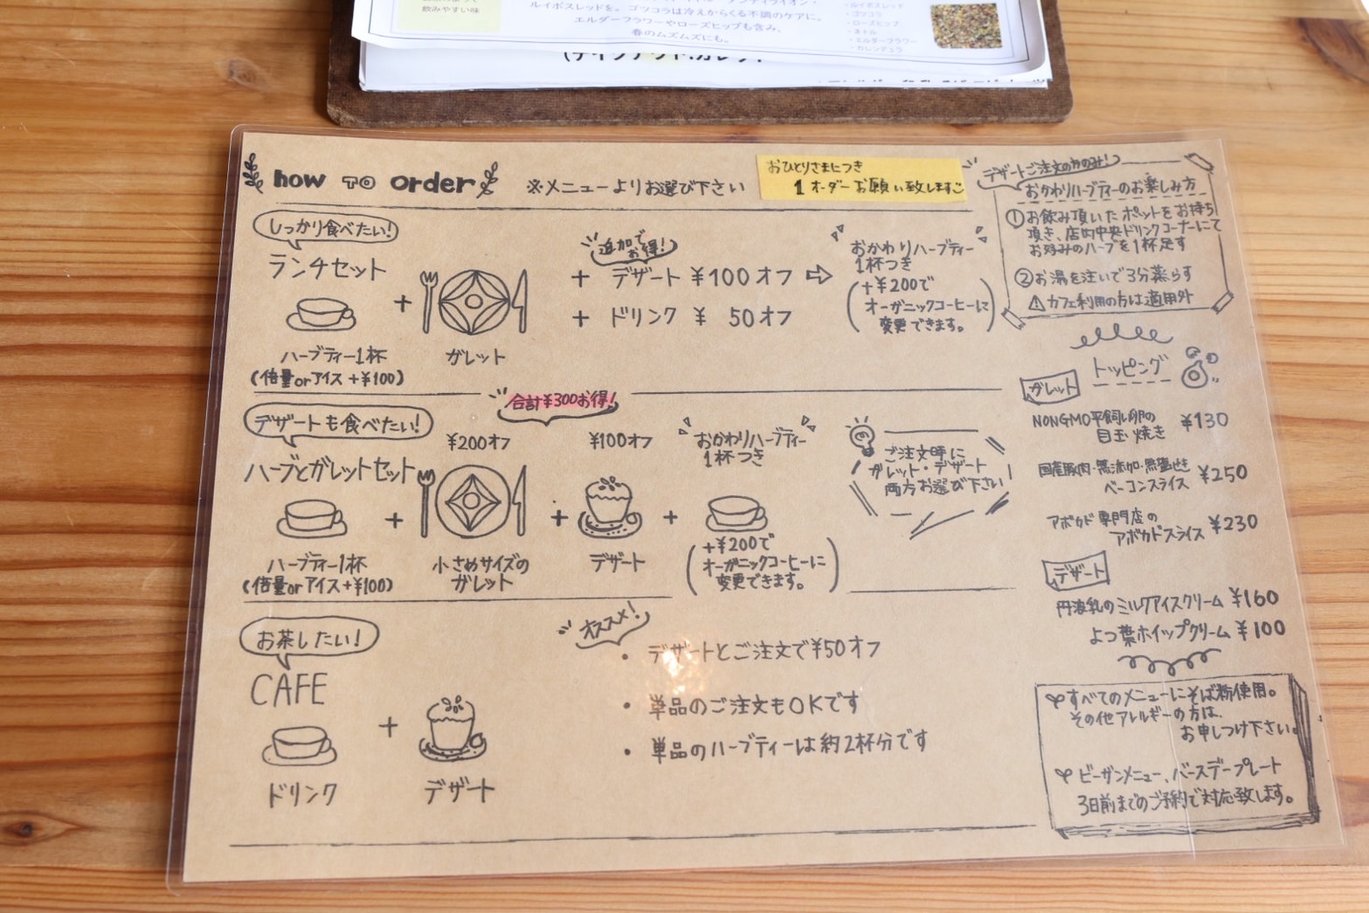 飲みやすい味
ルイボスレッドを。ゴツコラは冷えからくる不調のケアに。
エルダーフラワーやローズヒップも含み、
春のムズムズにも。
・ルイボスレッド
・ゴツコラ
・ローズヒップ
・ネトル
・エルダーフラワー
・カレンデュラ
how TO order
※メニューよりお選び下さい
おひとりさまにつき
1オーダーお願い致します
しっかり食べたい!
ランチセット
+
ハーブティー1杯
(倍量orアイス+¥100)
ガレット
追加でお得!
+ デザート ¥100オフ
+ ドリンク ¥ 50オフ
おかわりハーブティー
1杯つき
(+¥200で
オーガニックコーヒーに
変更できます。)
合計¥300お得!
デザートも食べたい!
ハーブとガレットセット
¥200オフ
¥100オフ
おかわりハーブティー
1杯つき
+
+
+
ハーブティー1杯
(倍量orアイス+¥100)
小さめサイズの
ガレット
デザート
(+¥200で
オーガニックコーヒーに
変更できます。)
ご注文時に
ガレット・デザート
両方お選び下さい
お茶したい!
CAFE
+
ドリンク
デザート
オススメ!
・デザートとご注文で¥50オフ
・単品のご注文もOKです
・単品のハーブティーは約2杯分です
デザートご注文の方のみ!
おかわりハーブティーのお楽しみ方
①お飲み頂いたポットをお持ち
頂き、店内中央ドリンクコーナーにて
お好みのハーブを1杯足す
②お湯を注いで3分蒸らす
⚠カフェ利用の方は適用外
トッピング
ガレット
NONGMO平飼い卵の
目玉焼き ¥130
国産豚肉・無添加・無塩せき
ベーコンスライス ¥250
アボカド専門店の
アボカドスライス ¥230
デザート
丹波乳のミルクアイスクリーム ¥160
よつ葉ホイップクリーム ¥100
すべてのメニューにそば粉使用。
その他アレルギーの方は、
お申しつけ下さい。
ビーガンメニュー、バースデープレート
3日前までのご予約で対応致します。